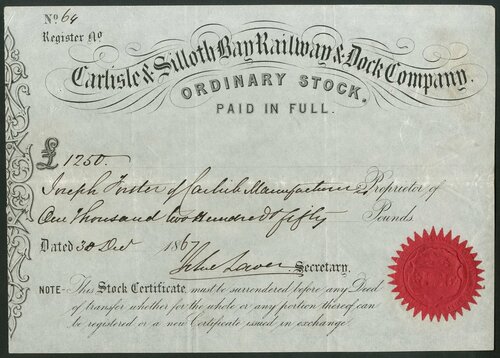 No 64
Register No
Carlisle & Silloth Bay Railway & Dock Company.
ORDINARY STOCK.
PAID IN FULL.
£ 1250.
Joseph Forster of Carlisle Manufacturer Proprietor of
One Thousand two Hundred & fifty Pounds.
Dated 30 Dec 1867
Secretary.
NOTE - This Stock Certificate, must be surrendered before any Deed
of transfer whether for the whole or any portion thereof can
be registered or a new Certificate issued in exchange.